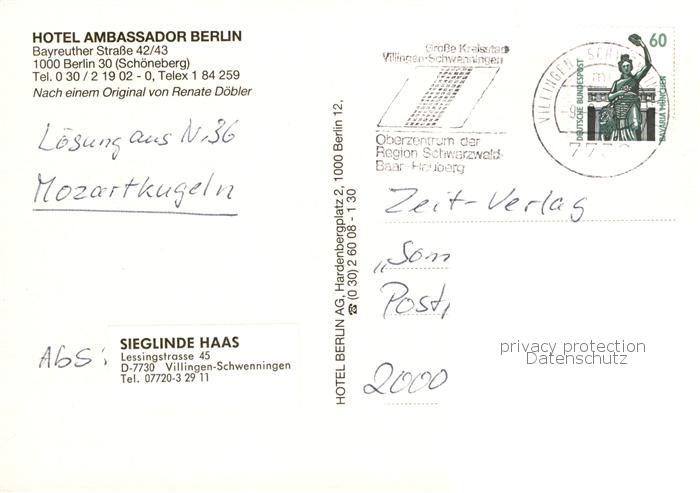 HOTEL AMBASSADOR BERLIN
Bayreuther Straße 42/43
1000 Berlin 30 (Schöneberg)
Tel. 0 30 / 2 19 02 - 0, Telex 1 84 259
Nach einem Original von Renate Döbler
Lösung aus N. 36
Mozartkugeln
Abs:
SIEGLINDE HAAS
Lessingstrasse 45
D-7730 Villingen-Schwenningen
Tel. 07720-3 29 11
HOTEL BERLIN AG, Hardenbergplatz 2, 1000 Berlin 12,
☎ (0 30) 2 60 08 - 1 30
Große Kreisstadt
Villingen-Schwenningen
Oberzentrum der
Region Schwarzwald-
Baar-Heuberg
VILLINGEN-SCHW
7730
60
DEUTSCHE BUNDESPOST
BAVARIA MÜNCHEN
Zeit-Verlag
Post
2000
privacy protection
Datenschutz